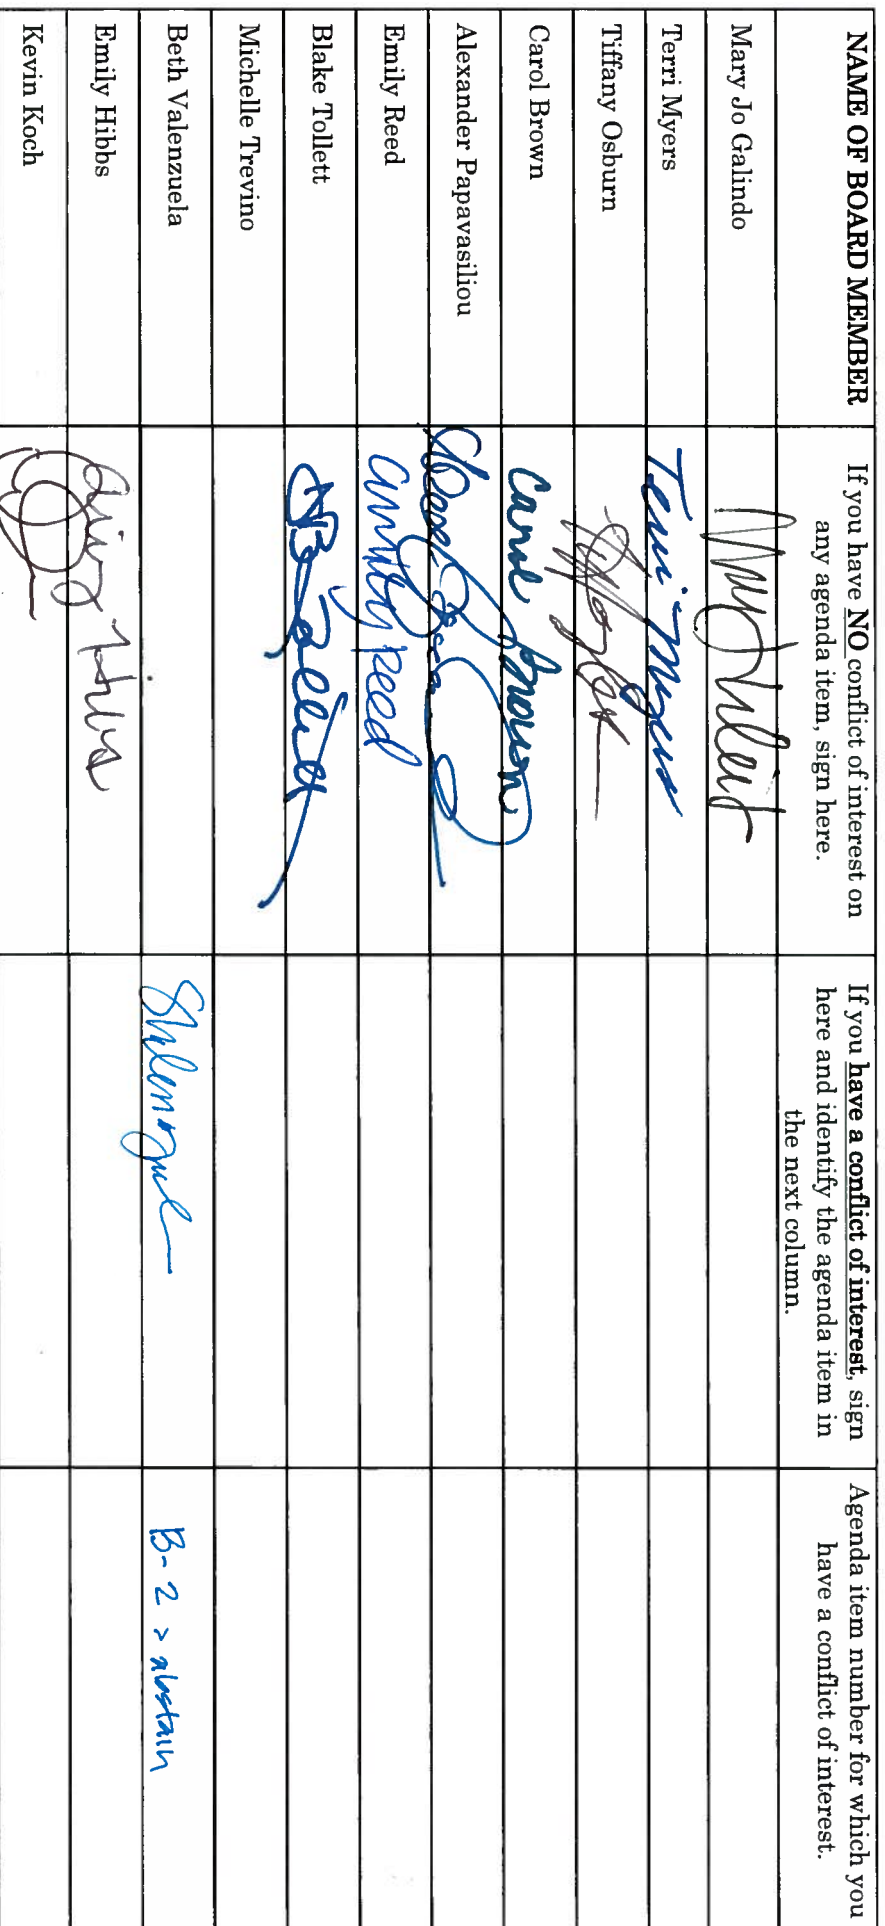 NAME OF BOARD MEMBER
If you have NO conflict of interest on
any agenda item, sign here.
If you have a conflict of interest, sign
here and identify the agenda item in
the next column.
Agenda item number for which you
have a conflict of interest.
Mary Jo Galindo
Terri Myers
Terri Myers
Tiffany Osburn
Carol Brown
Carol Brown
Alexander Papavasiliou
Emily Reed
Emily Reed
Blake Tollett
Blake Tollett
Michelle Trevino
Beth Valenzuela
B-2 > abstain
Emily Hibbs
Emily Hibbs
Kevin Koch